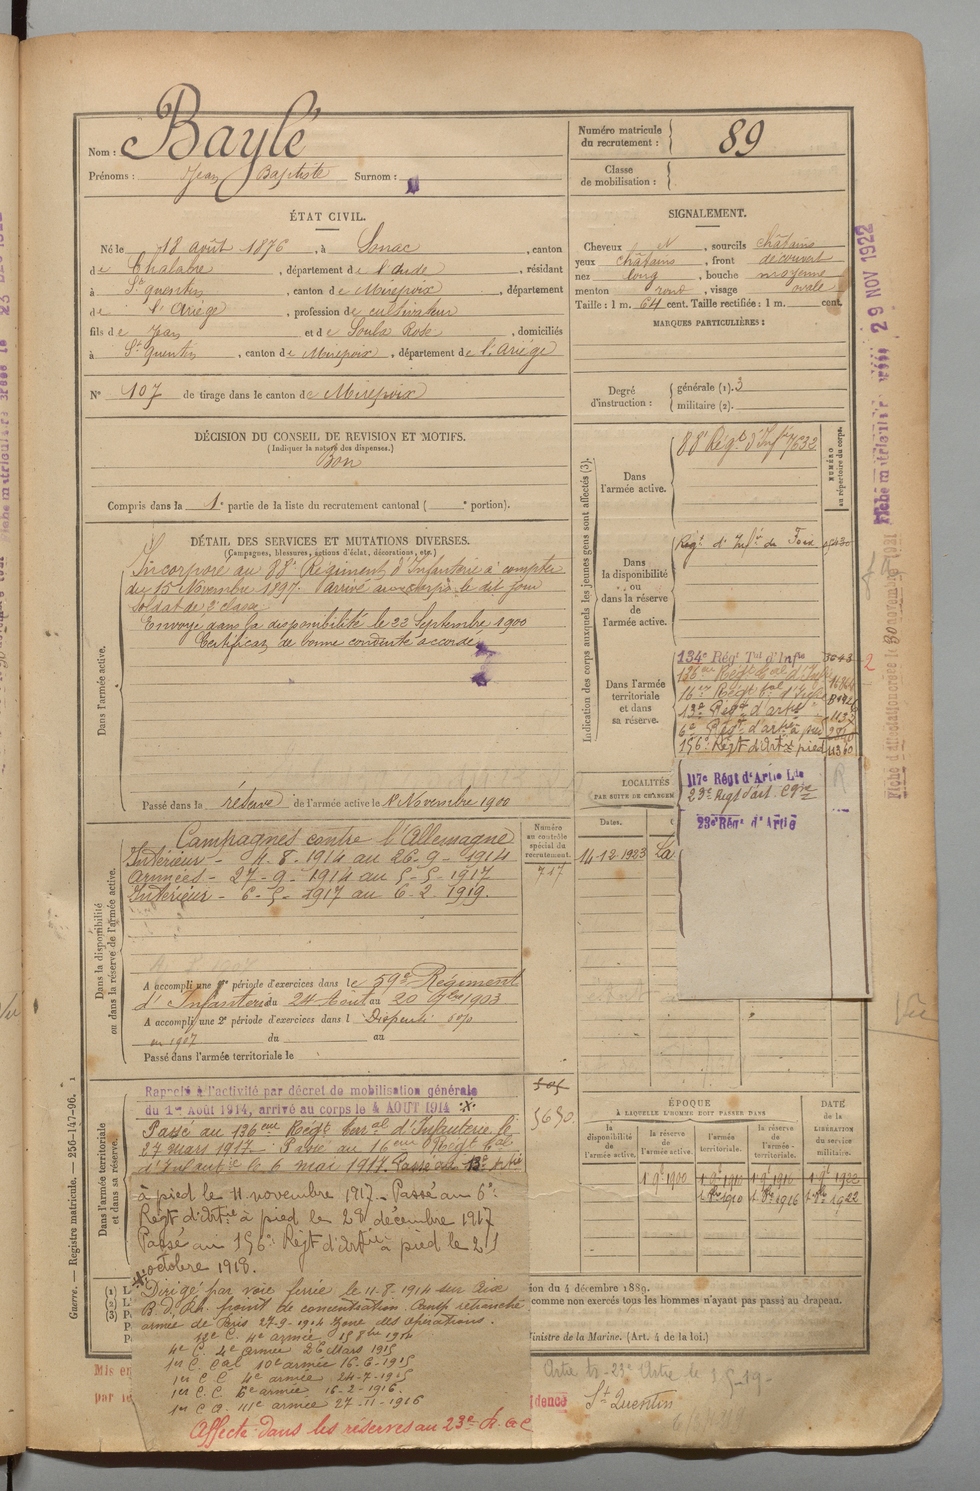 Nom : Baylé
Prénoms : Jean Baptiste Surnom :
Numéro matricule du recrutement : 89
Classe de mobilisation :
ÉTAT CIVIL.
Né le 18 août 1876, à Sonac, canton
de Chalabre, département de l'Aude, résidant
à St quentin, canton de Mirepoix, département
de l'Ariège, profession de cultivateur
fils de Jean et de Soula Rose, domiciliés
à St Quentin, canton de Mirepoix, département de l'ariège
N° 107 de tirage dans le canton de Mirepoix
SIGNALEMENT.
Cheveux N, sourcils châtains
yeux châtains, front découvert
nez long, bouche moyenne
menton rond, visage ovale
Taille : 1 m. 64 cent. Taille rectifiée : 1 m. cent.
MARQUES PARTICULIÈRES :
Degré d'instruction : générale (1). 3
militaire (2).
DÉCISION DU CONSEIL DE REVISION ET MOTIFS.
(Indiquer la nature des dispenses.)
Bon
Compris dans la 1e partie de la liste du recrutement cantonal ( e portion).
DÉTAIL DES SERVICES ET MUTATIONS DIVERSES.
(Campagnes, blessures, actions d'éclat, décorations, etc.)
Dans l'armée active.
Incorporé au 88e Régiment d'Infanterie à compter
du 15 Novembre 1897. Arrivé au corps le dit jour
soldat de 2e classe
Envoyé dans la disponibilité le 22 Septembre 1900
Certificat de bonne conduite accordé
Passé dans la réserve de l'armée active le 1er Novembre 1900
Indication des corps auxquels les jeunes gens sont affectés (3).
NUMÉRO au répertoire du corps.
Dans l'armée active.
88e Régt d'Infie 7632
Dans la disponibilité ou dans la réserve de l'armée active.
Régt d'Infie de Foix
Dans l'armée territoriale et dans sa réserve.
134e Régt Tal d'Infie
136me Régt tal d'Infie
16me Régt tal d'Infie
13e Régt d'artie
6e Régt d'artie à pied
156e Régt d'Artie à pied
117e Régt d'Artie Lde
23e Régt d'art. Cgne
23e Régt d'Artie
Dans la disponibilité ou dans la réserve de l'armée active.
Campagnes contre l'Allemagne
Intérieur - 4. 8. 1914 au 26. 9 - 1914
Armées - 27 - 9 - 1914 au 5 - 5 - 1917
Intérieur - 6 - 5 - 1917 au 6 - 2 - 1919.
Numéro au contrôle spécial du recrutement.
717
A accompli une 1re période d'exercices dans le 59e Régiment
d'Infanterie du 24 Août au 20 7bre 1903
A accompli une 2e période d'exercices dans l Dispensé
en 1907 du au
Passé dans l'armée territoriale le
LOCALITÉS
PAR SUITE DE CHANGEM
Dates.
14-12-1923 La
Dans l'armée territoriale et dans sa réserve.
Rappelé à l'activité par décret de mobilisation générale
du 1er Août 1914, arrivé au corps le 4 AOUT 1914
Passé au 136eme Régt terral d'Infanterie le
27 mars 1917. Passé au 16eme Régt tal
d'Infantie le 6 mai 1917. Passé au 13e artie
à pied le 11 novembre 1917. Passé au 6e
Régt d'Artie à pied le 28 décembre 1917
Passé au 156e Régt d'Artie à pied le 21
octobre 1918.
5690.
Dirigé par voie ferrée le 11-8-1914 sur Aix
B. d. Rh. point de concentration. Camp retranché
armée de Paris 27-9-1914 zone des opérations.
4e C. 4e armée 26 Mars 1915
1er C. Cal 10e armée 16-6-1915
1er C C 4e armée 24-7-1915
1er C. C. 6e armée 16-2-1916.
1er C A. 111e armée 27-11-1916
Affecté dans les réserves au 23e R. a c
ÉPOQUE
À LAQUELLE L'HOMME DOIT PASSER DANS
la disponibilité de l'armée active.
la réserve de l'armée active.
l'armée territoriale.
la réserve de l'armée territoriale.
DATE de la LIBÉRATION du service militaire.
1 9e 1900 1 9e 1910 1 9e 1916 1 9e 1922
1 8bre 1910 1 8bre 1916 1 8bre 1922
ion du 4 décembre 1889.
comme non exercés tous les hommes n'ayant pas passé au drapeau.
Ministre de la Marine. (Art. 4 de la loi.)
Mis en
par le
idence
St Quentin
Guerre. — Registre matricule. — 256-147-96. 1
Fiche matriculaire 29 NOV 1922
Fiche d'affectation